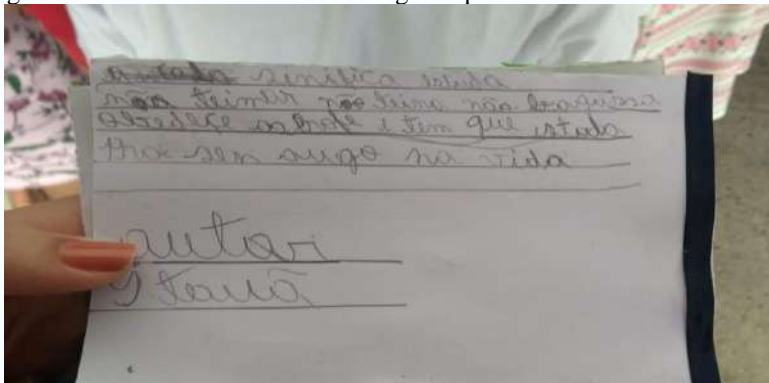 sinifica istuda
não teimar não teima não bagunsa
obedese e tem que istuda
sen augo na vida
autor
Itauã